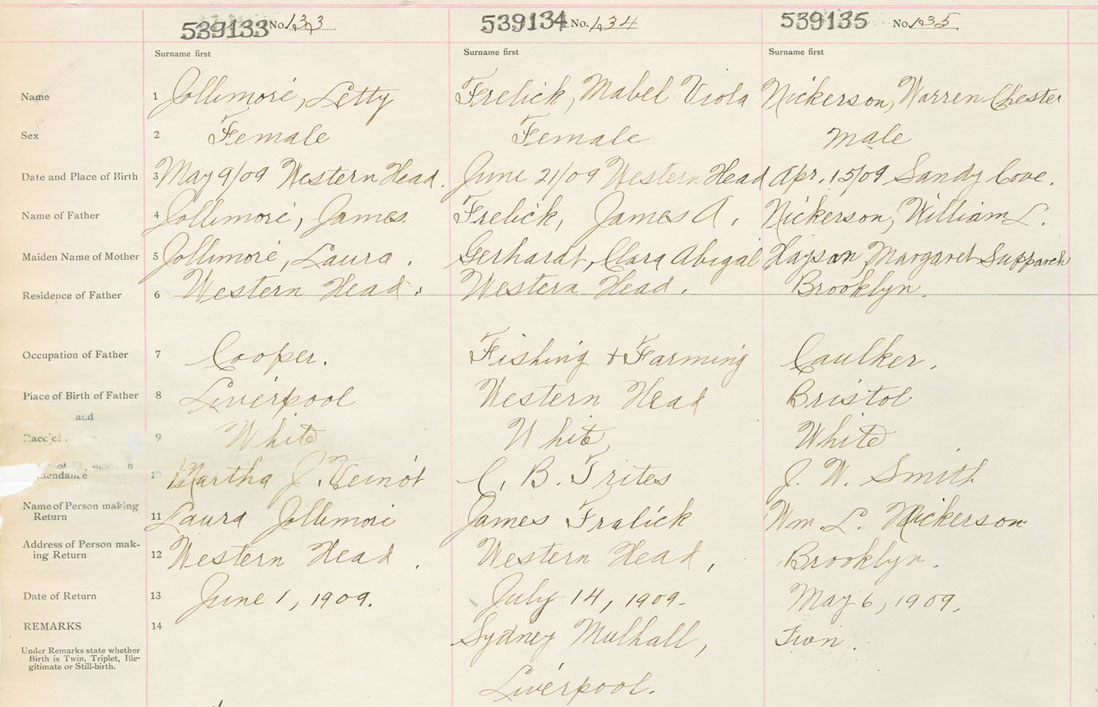 539133 No. 133 539134 No. 134 539135 No. 135
Surname first Surname first Surname first
Name 1 Jollimore, Letty Frelick, Mabel Viola Nickerson, Warren Chester
Sex 2 Female Female male
Date and Place of Birth 3 May 9/09 Western Head. June 21/09 Western Head Apr. 15/09 Sandy Cove.
Name of Father 4 Jollimore, James Frelick, James A. Nickerson, William L.
Maiden Name of Mother 5 Jollimore, Laura. Gerhardt, Clara Abigal Margaret
Residence of Father 6 Western Head. Western Head. Brooklyn.
Occupation of Father 7 Cooper. Fishing & Farming Caulker.
Place of Birth of Father 8 Liverpool Western Head Bristol
and
9 White White White
10 Martha J. Veinot C. B. Trites J. W. Smith
Name of Person making
Return 11 Laura Jollimore James Fralick Wm. L. Nickerson
Address of Person mak-
ing Return 12 Western Head. Western Head, Brooklyn.
Date of Return 13 June 1, 1909. July 14, 1909. May 6, 1909.
REMARKS 14 Sydney Mulhall, Twn.
Under Remarks state whether
Birth is Twin, Triplet, Ille-
gitimate or Still-birth.
Liverpool.